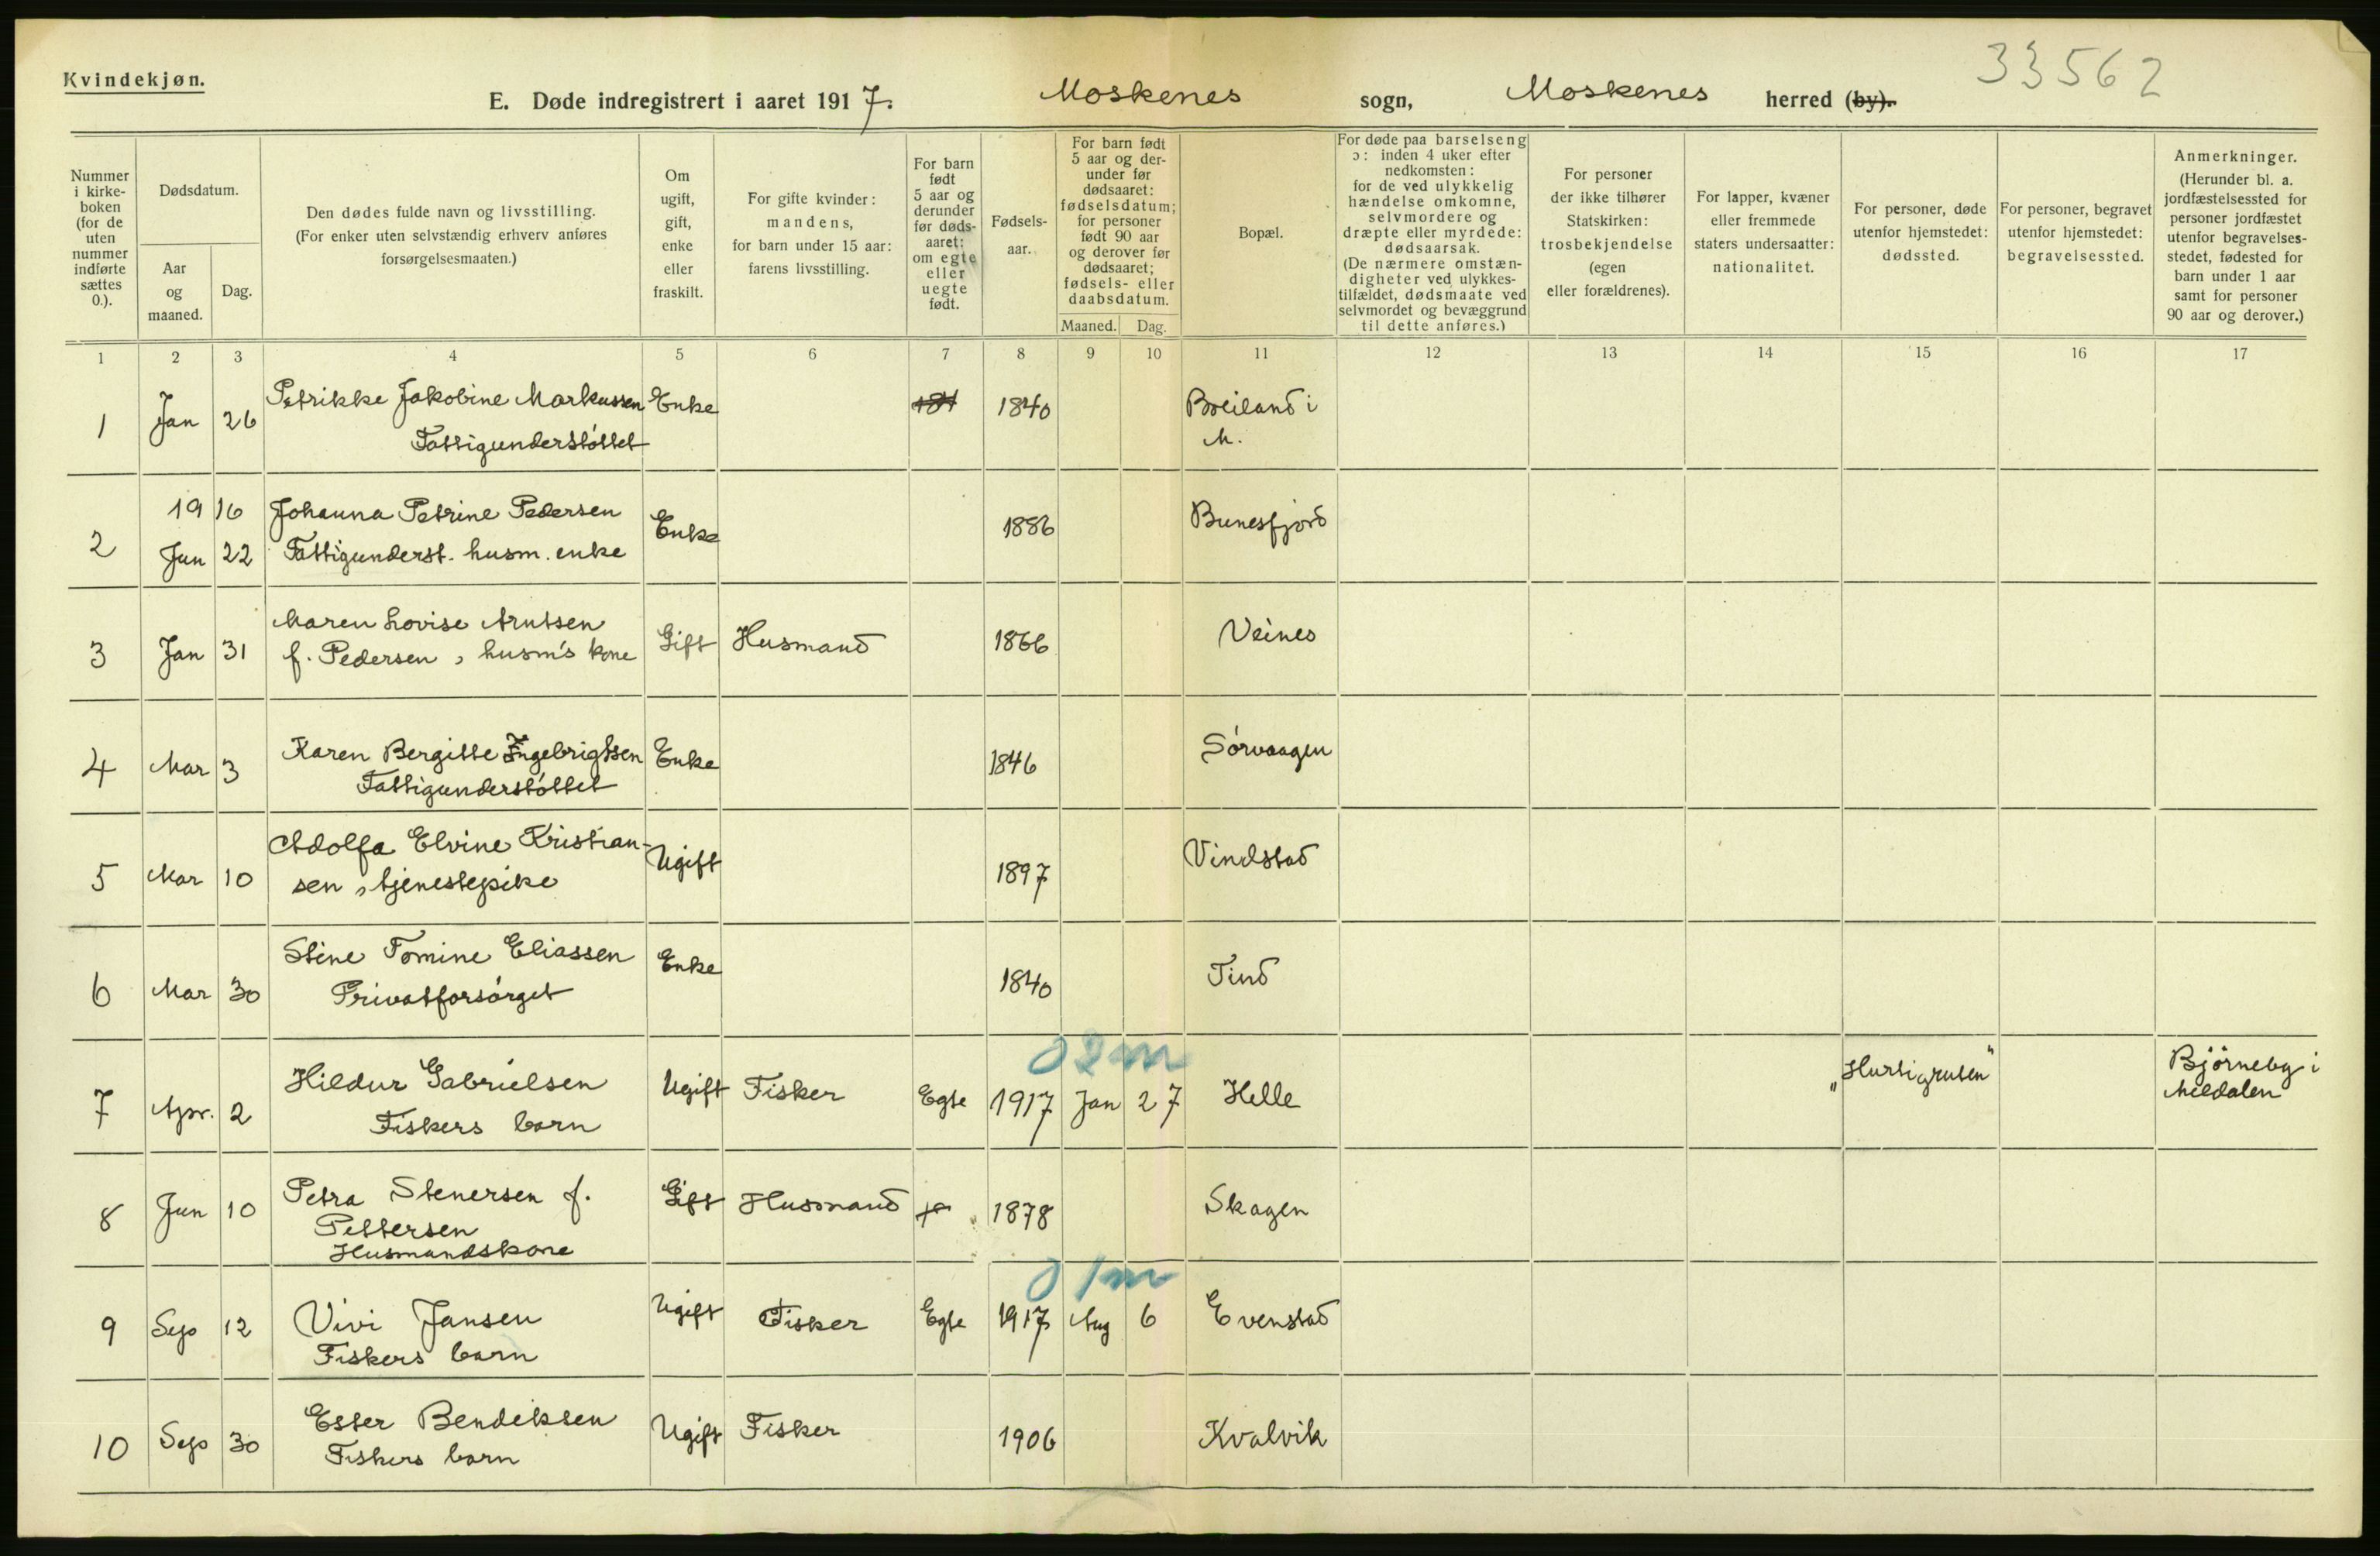 Kvindekjøn.
33562
E. Døde indregistrert i aaret 1917. Moskenes sogn, Moskenes herred (by).
Nummer i kirkeboken (for de uten nummer indførte sættes 0.).
Dødsdatum.
Aar og maaned.
Dag.
Den dødes fulde navn og livsstilling.
(For enker uten selvstændig erhverv anføres forsørgelsesmaaten.)
Om ugift, gift, enke eller fraskilt.
For gifte kvinder: mandens, for barn under 15 aar: farens livsstilling.
For barn født 5 aar og derunder før dødsaaret: om egte eller uegte født.
Fødselsaar.
For barn født 5 aar og derunder før dødsaaret: fødselsdatum; for personer født 90 aar og derover før dødsaaret; fødsels- eller daabsdatum.
Maaned. Dag.
Bopæl.
For døde paa barselseng ɔ: inden 4 uker efter nedkomsten: for de ved ulykkelig hændelse omkomne, selvmordere og dræpte eller myrdede: dødsaarsak.
(De nærmere omstændigheter ved ulykkestilfældet, dødsmaate ved selvmordet og bevæggrund til dette anføres.)
For personer der ikke tilhører Statskirken: trosbekjendelse (egen eller forældrenes).
For lapper, kvæner eller fremmede staters undersaatter: nationalitet.
For personer, døde utenfor hjemstedet: dødssted.
For personer, begravet utenfor hjemstedet: begravelsessted.
Anmerkninger.
(Herunder bl. a. jordfæstelsessted for personer jordfæstet utenfor begravelsesstedet, fødested for barn under 1 aar samt for personer 90 aar og derover.)
1 2 3 4 5 6 7 8 9 10 11 12 13 14 15 16 17
1 Jan 26 Petrikke Jakobine Markussen Enke 1840 Breiland i
Fattigunderstøttet M.
1916 Johanna Petrine Pedersen Enke 1886 Bunesfjord
2 Jun 22 Fattigunderst. husm. enke
Maren Lovise Arntsen
3 Jan 31 f. Pedersen, husm's kone Gift Husmand 1866 Veines
4 Mar 3 Karen Bergitte Ingebrigtsen Enke 1846 Sørvaagen
Fattigunderstøttet
Adolfa Elvine Kristian- Ugift Vindstad
5 Mar 10 sen, tjenestepike 1897
Stine Tomine Eliassen Enke Tind
6 Mar 30 Privatforsørget 1840
0 2m
7 Apr. 2 Hildur Gabrielsen Ugift Fisker Egte 1917 Jan 27 Helle "Hurtigruten" Björneby i
Fiskers barn Meldalen
8 Jun 10 Petra Stenersen f. Gift Husmand 1878 Skagen
Pettersen
Husmandskone
0 1m
9 Sep 12 Vivi Jansen Ugift Fisker Egte 1917 Aug 6 Evenstad
Fiskers barn
10 Sep 30 Ester Bendiksen Ugift Fisker 1906 Kvalvik
Fiskers barn